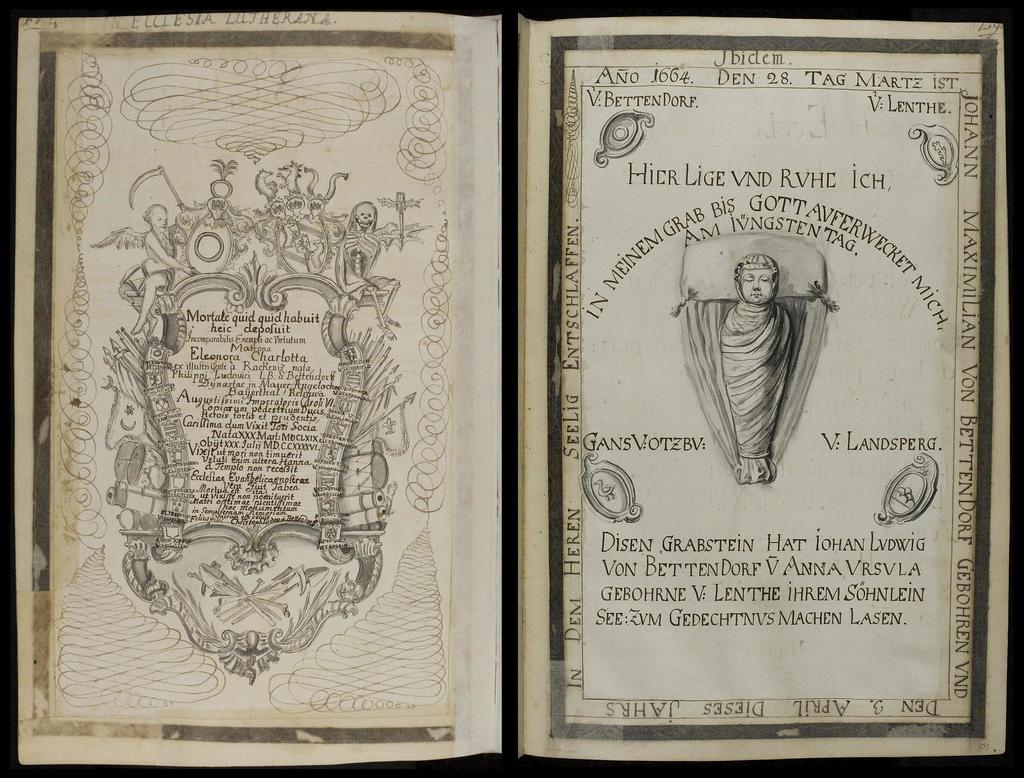 IN ECCLESIA LUTHERANA.
Mortale quid quid habuit
heic deposuit
Incomparabilis Exempli ac Virtutum
Matrona
Eleonora Charlotta
ex illustri Gente à Racknitz nata
Philippi Ludovici L.B. à Bettendorf
Dynastae in Mauer Angeloch
Bayerthal Relicta
Augustissimi Imperatoris Caroli VI.
Copiarum pedestrium Ducis
Herois fortis et prudentis
Carissima dum Vixit Tori Socia
Nata XXX Mart: MDCLXIX
obijt XXX Julij MDCCXXXVI
Vixit ut mori non timuerit
Veluti enim altera Hanna
a Templo non recessit
Ecclesiae Evangelicae nostrae
Vera fuit Tabea
Mortua est Ita
ut vixisse non poenituerit
Matri optimae pientissimae
hoc monumentum
in Sempiternam Memoriam
Ibidem.
AÑO 1664. DEN 28. TAG MARTZ IST
JOHANN MAXIMILIAN VON BETTENDORF GEBOHREN VND
DEN 3. APRIL DIESES JAHRS
IN DEM HEREN SEELIG ENTSCHLAFFEN.
V: BETTENDORF.
V: LENTHE.
HIER LIGE VND RVHE ICH,
IN MEINEM GRAB BIS GOTT AVFERWECKET MICH,
AM IÜNGSTEN TAG.
GANS V: OTZBV:
V: LANDSPERG.
DISEN GRABSTEIN HAT IOHAN LVDWIG
VON BETTENDORF V̄ ANNA VRSVLA
GEBOHRNE V: LENTHE IHREM SÖHNLEIN
SEE: ZVM GEDECHTNVS MACHEN LASEN.